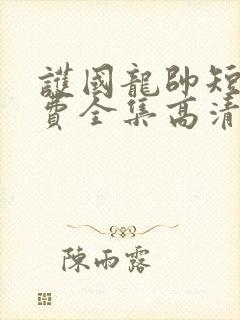 護國龍帥短
費全集高清
陳雨露